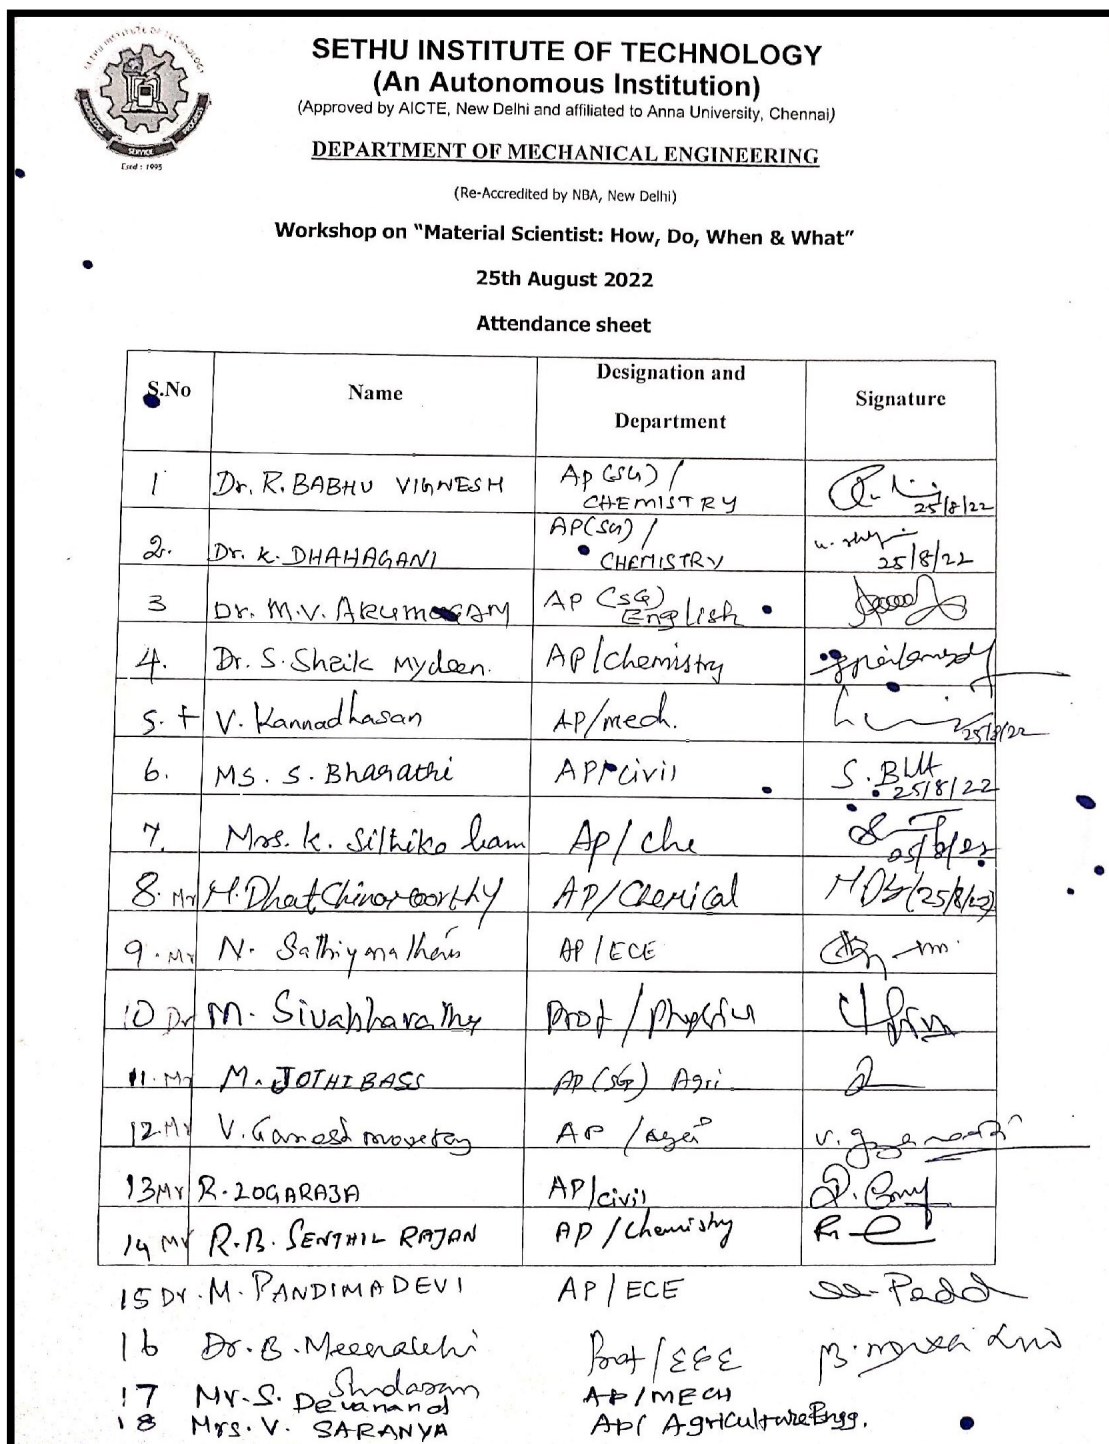 SETHU INSTITUTE OF TECHNOLOGY
(An Autonomous Institution)
(Approved by AICTE, New Delhi and affiliated to Anna University, Chennai)
DEPARTMENT OF MECHANICAL ENGINEERING
Estd : 1995
(Re-Accredited by NBA, New Delhi)
Workshop on “Material Scientist: How, Do, When & What”
25th August 2022
Attendance sheet
S.No Name Designation and Department Signature
1 Dr. R. BABHU VIGNESH AP (SG) / CHEMISTRY 25/8/22
2. Dr. K. DHAHAGANI AP(SG) / CHEMISTRY 25/8/22
3 Dr. M.V. AP (SG) English
4. Dr. S. Sheik Mydeen. AP/Chemistry
5. V. Kannadhasan AP/mech. 25/8/22
6. Ms. S. Bharathi AP/civil 25/8/22
7. Mrs. K. AP/Che
8. Mr M. Dhatchinamoorthy AP/Chemical (25/8/22)
9. Mr N. AP/ECE
10 Dr M. Prof / Physics
11. Mr M. JOTHIBASS AP (SG) Agri
12. Mr V. AP /Agri
13 Mr R. LOGARAJA AP/civil
14 Mr R.B. SENTHIL RAJAN AP /Chemistry
15 Dr. M. PANDIMADEVI AP/ECE
16 Dr. B. Meenakshi Prof/EEE
17 Mr. S. Devanand AP/MECH
18 Mrs. V. SARANYA AP/ Agriculture Engg.